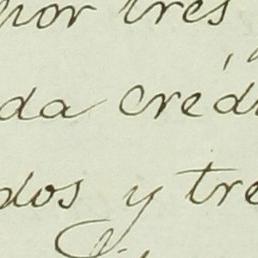 por tres
da créd
dos y tre